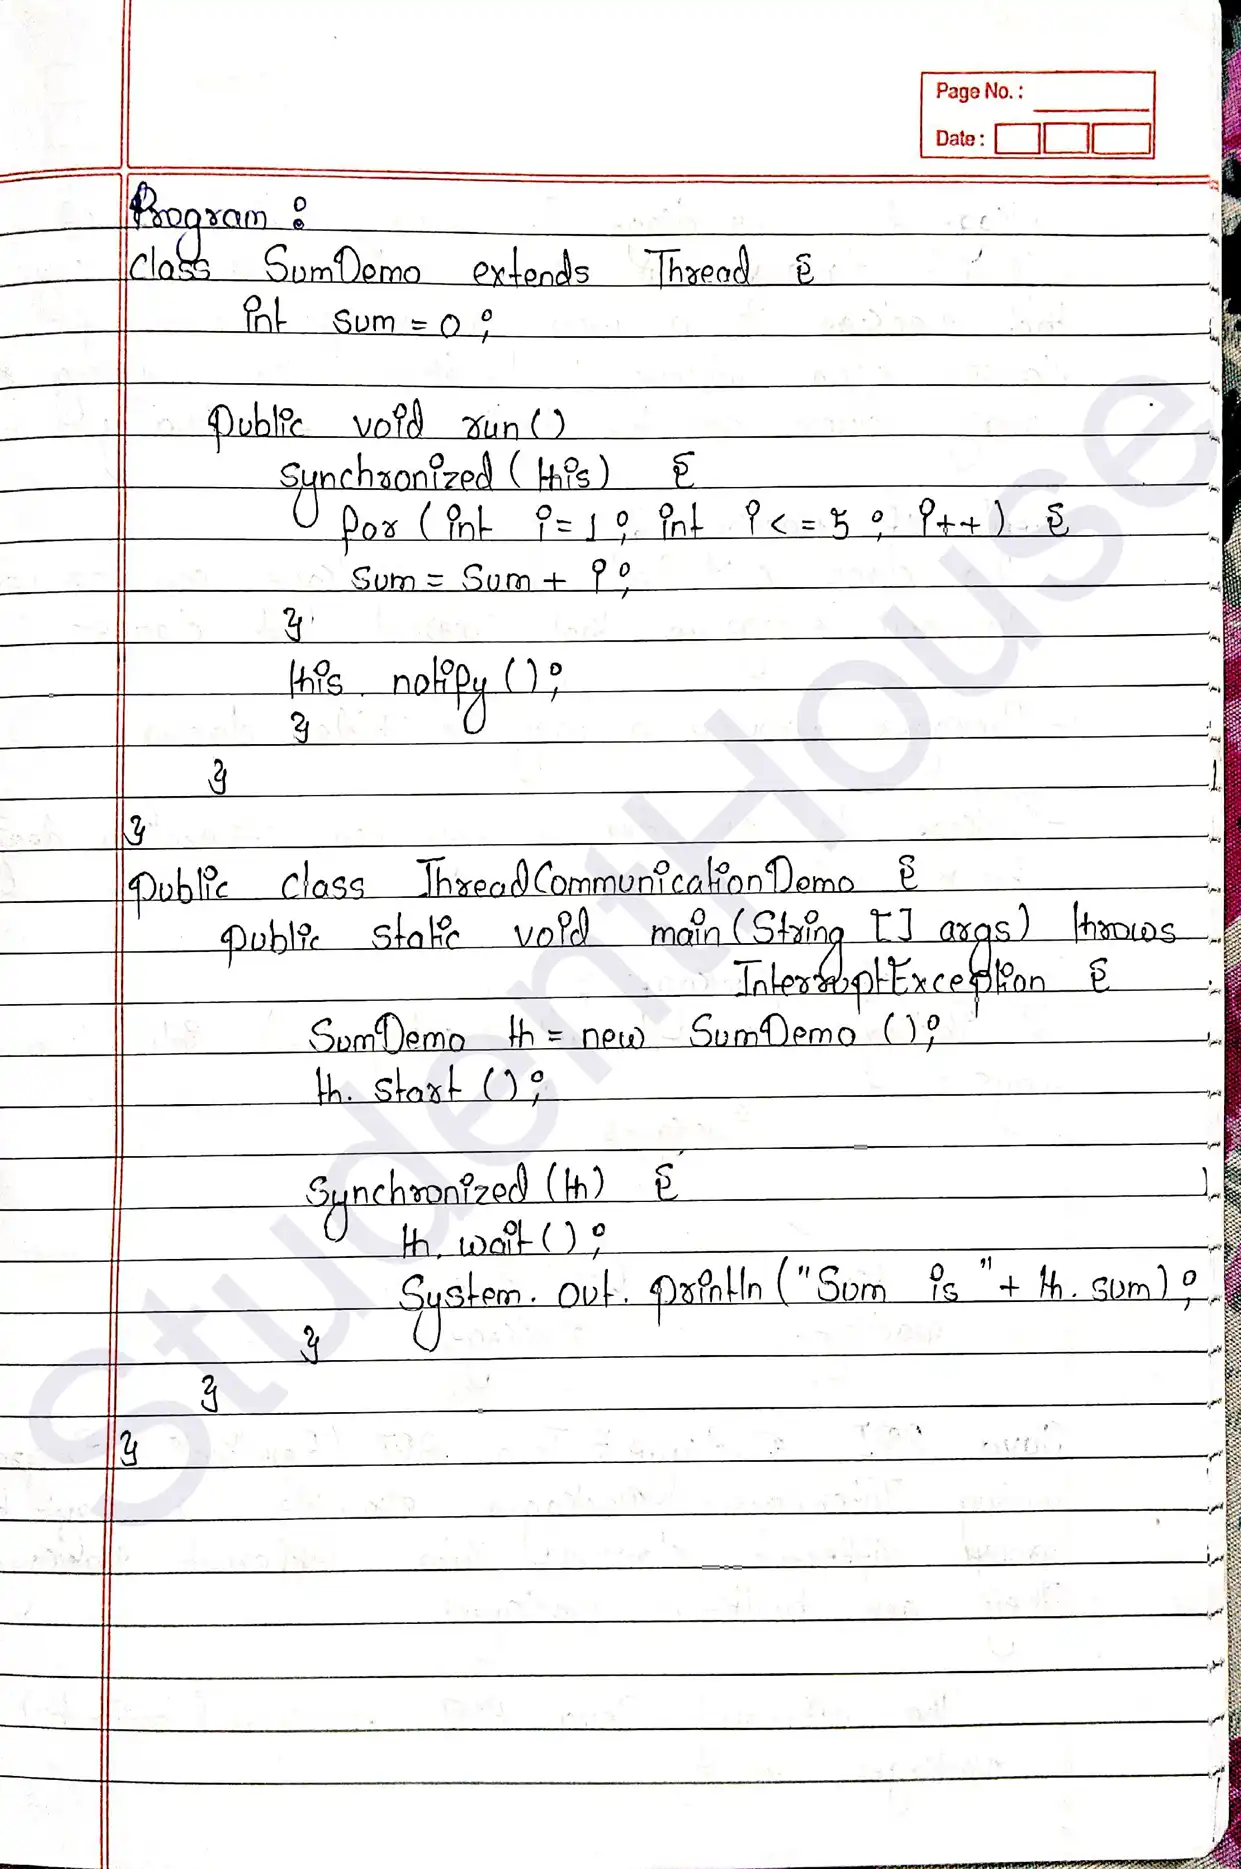 Page No. :
Date :
Program :
class SumDemo extends Thread {
int sum = 0 ;
public void run ()
synchronized ( this ) {
for ( int i = 1 ; int i < = 5 ; i + + ) {
sum = sum + i ;
}
this . notify () ;
}
}
}
public class ThreadCommunicationDemo {
public static void main ( String [] args ) throws
InterruptException {
SumDemo th = new SumDemo () ;
th. start () ;
Synchronized (th) {
th. wait () ;
System. out. println ( "Sum is " + th. sum ) ;
}
}
}
StudentHouse